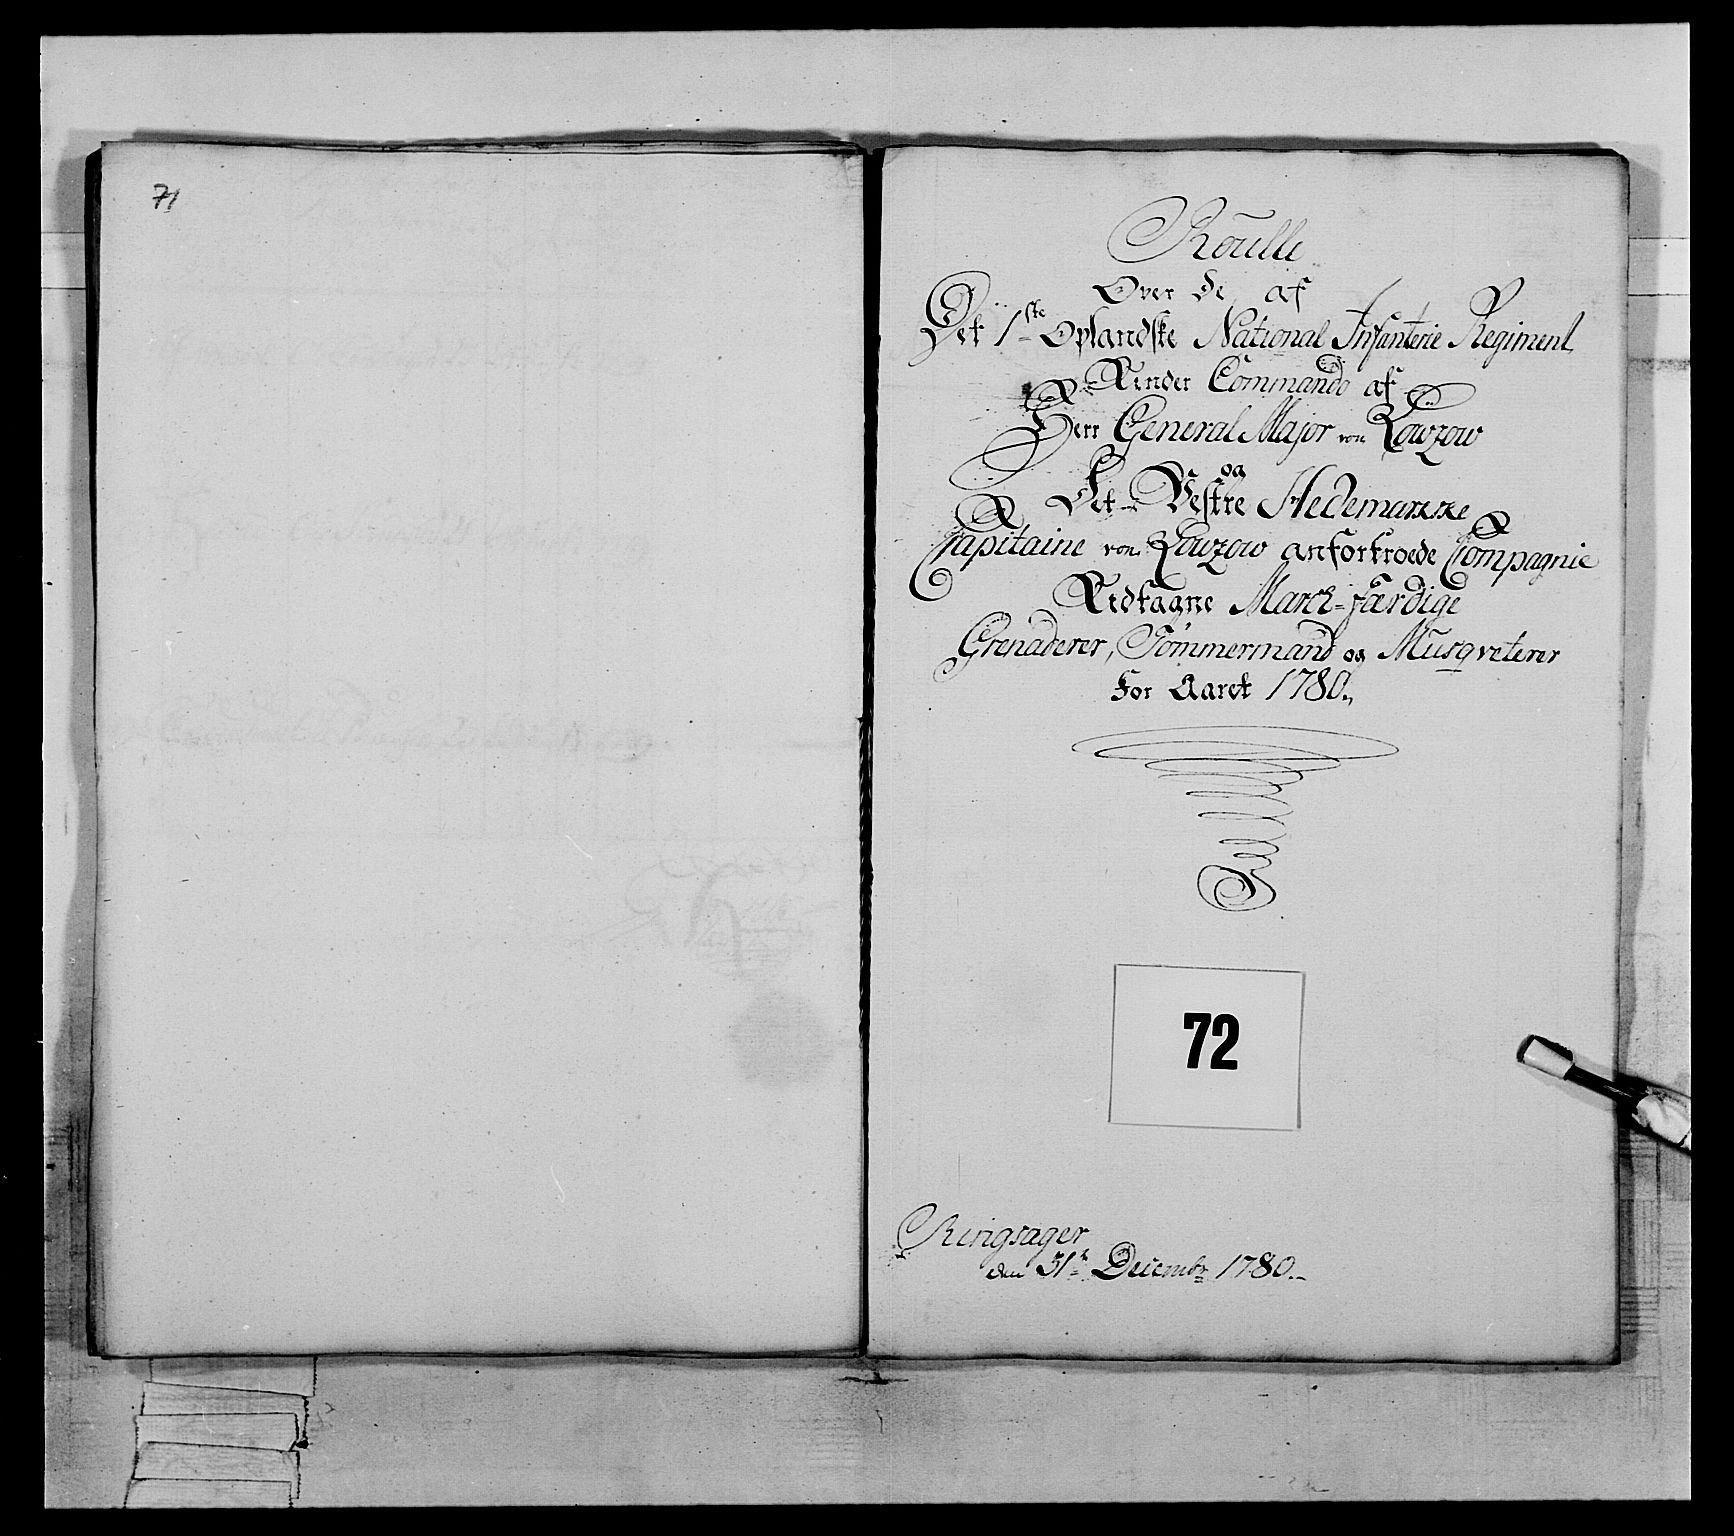 71
Roulle
Over de af
Det 1ste Oplandske National Infanterie Regiment
Under Commando af
Herr General Major von Løwzow
og
Det Vestre Hedemarkske
Capitaine von Løwzow anfortroede Compagnie
Udtagne March-færdige
Grenaderer, Tømmermænd og Musqveterer
for Aaret 1780.,
72
Ringsager
den 31te Decembr 1780.